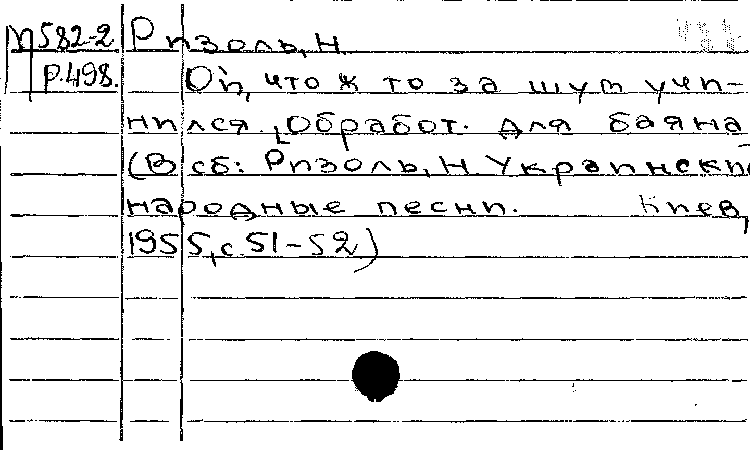 М582-2 Ризоль, Н.
Р.498. Ой, что ж то за шум учи-
нился. [Обработ. для баяна
(В сб: Ризоль, Н. Украински
народные песни. Киев,
1955, с. 51-52)